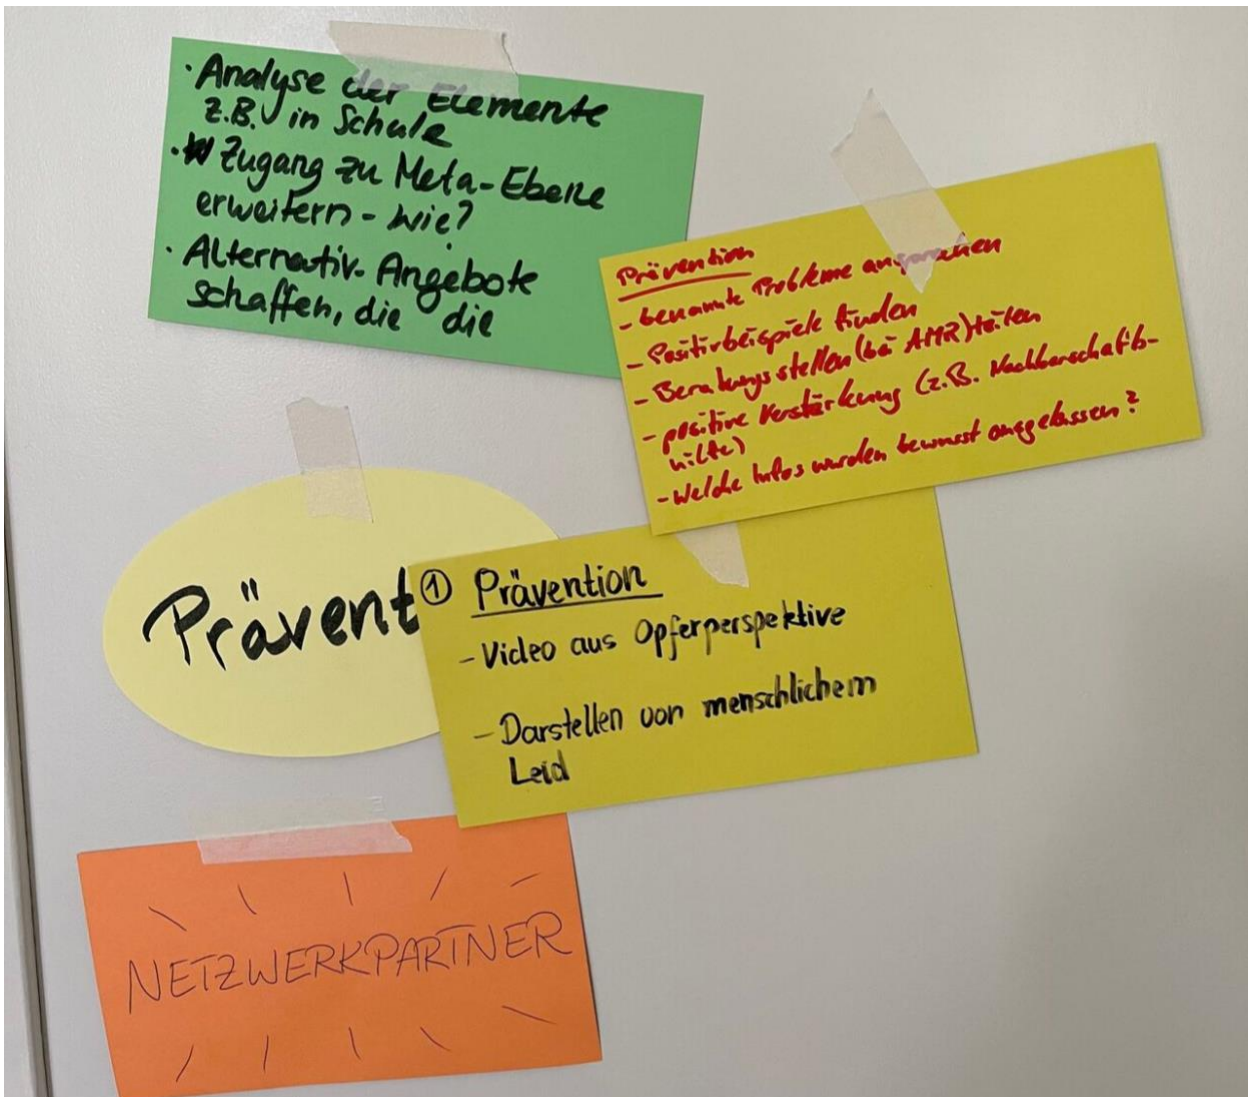 · Analyse der Elemente
z.B. in Schule
· Zugang zu Meta-Ebene
erweitern - wie?
· Alternativ-Angebote
schaffen, die die
Prävention
- benannte Probleme ansprechen
- Positivbeispiele finden
- Beratungsstellen (bei AMR)
- positive Verstärkung (z.B. Nachbarschafts-
hilfe)
- Welche Infos wurden bewusst ausgelassen?
Prävent
① Prävention
- Video aus Opferperspektive
- Darstellen von menschlichem
Leid
NETZWERKPARTNER